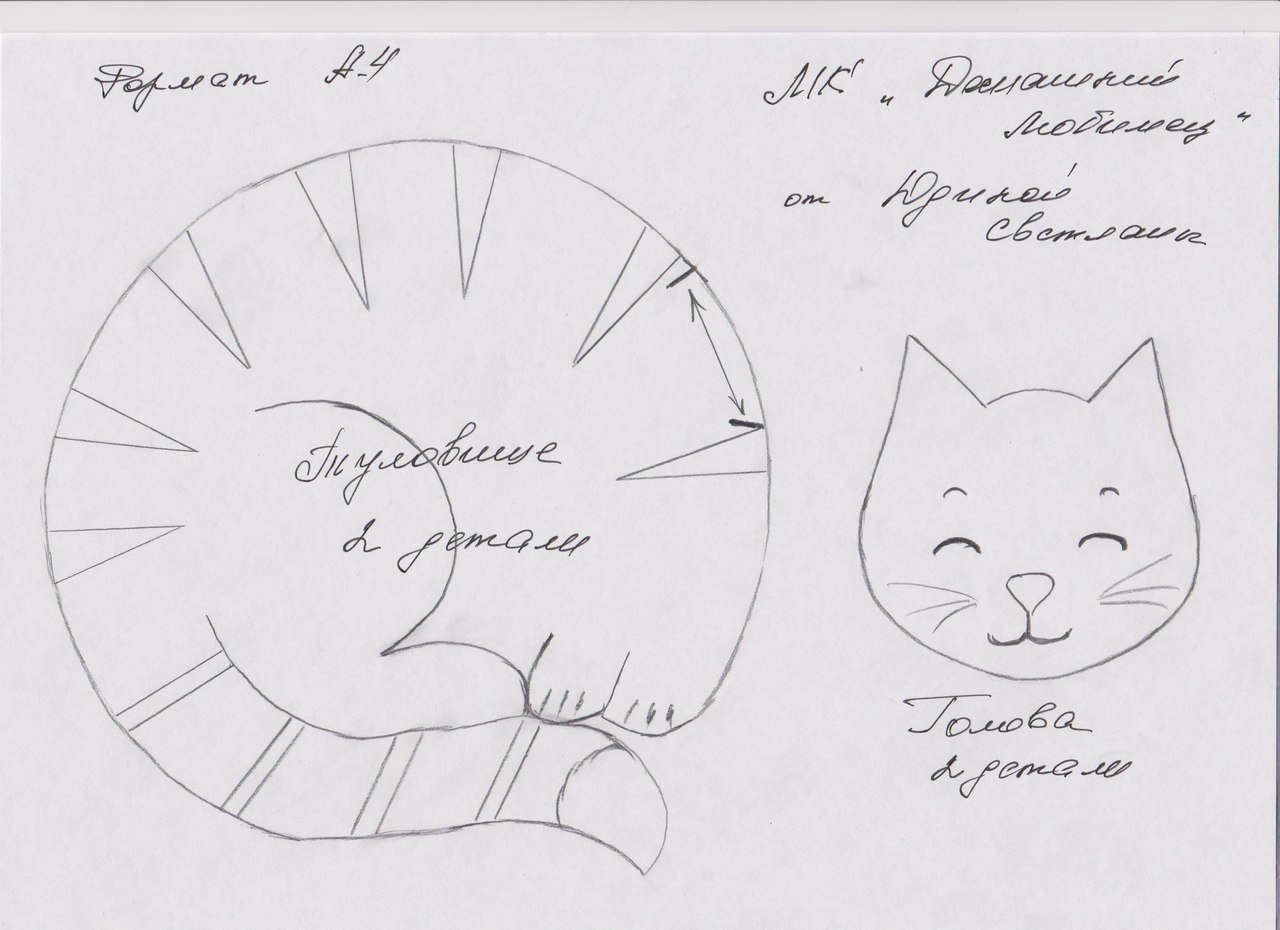 Формат А-4
МК „Домашний
Любимец"
от Юдиной
Светланы
Туловище
2 детали
Голова
2 детали